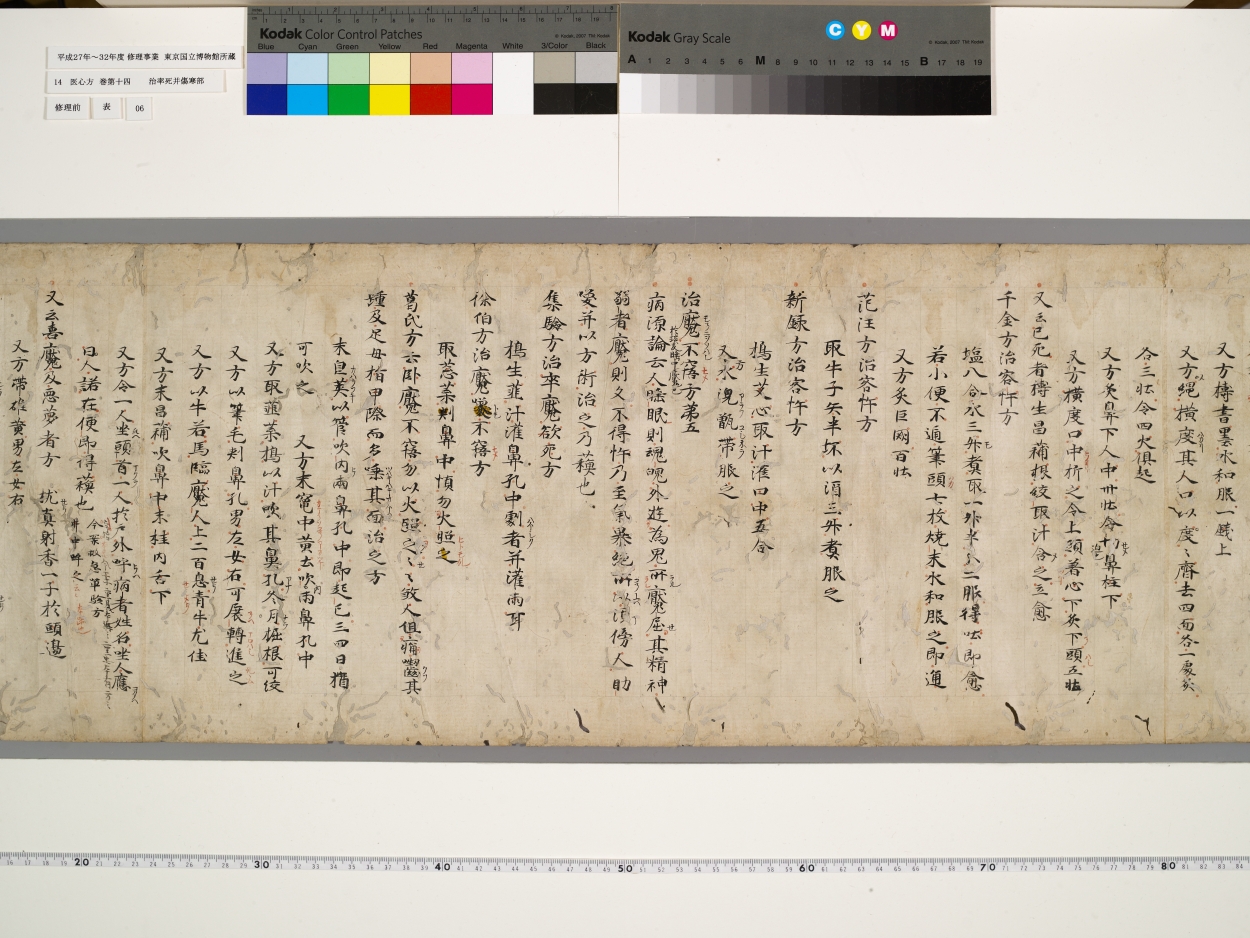 平成27年～32年度 修理事業 東京国立博物館所蔵
14 医心方 巻第十四 治卒死并傷寒部
修理前 表 06
Kodak Color Control Patches
© Kodak, 2007 TM: Kodak
Blue Cyan Green Yellow Red Magenta White 3/Color Black
Kodak Gray Scale
C Y M
© Kodak, 2007 TM: Kodak
A 1 2 3 4 5 6 M 8 9 10 11 12 13 14 15 B 17 18 19
又方擣書墨水和服一錢上
又方縄横度其人口以度〻齊去四面各一處灸
各三壮令四火俱起
又方灸鼻下人中卅壮令切鼻柱下
又方横度口中折之令上頭着心下灸下頭五壮
又云已死者擣生昌蒲根絞取汁含之立愈
千金方治客忤方
塩八合水三升煮取一升半分二服得吐即愈
若小便不通筆頭七枚焼末水和服之即通
又方灸巨闕百壮
范汪方治客忤方
取牛子矢半坏以酒三升煮服之
新録方治客忤方
擣生艾心取汁灌口中五合
又方水洗甑帶服之
治魘不寤方第五
病源論云人睡眠則魂魄外遊為鬼所魘屈其精神
弱者魘則久不得忤乃至氣暴絶所以須傍人助
喚并以方術治之乃蘓也
集驗方治卒魘欲死方
擣生韮汁灌鼻孔中劇者并灌兩耳
徐伯方治魘不寤方
取葱葉刺鼻中慎勿火照之
葛氏方云卧魘不寤勿以火照之〻〻殺人但痛齧其
踵及足母指甲際而多唾其面治之方
末皀莢以管吹内兩鼻孔中即起已三四日猶
可吹之 又方末竃中黄去吹兩鼻孔中
又方取韮葉擣以汁吹其鼻孔冬月掘根可絞
又方以筆毛刺鼻孔男左女右可展轉進之
又方以牛若馬臨魘人上二百息青牛尤佳
又方末昌蒲吹鼻中末桂内舌下
又方令一人坐頭首一人於外呼病者姓名坐人應
曰人諾在便即得蘓也
又云喜魘及悪夢者方 犹真射香一子於頭邊
又方帯雄黄男左女右
20 30 40 50 60 70 80